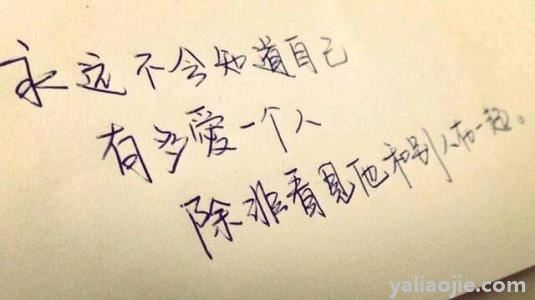 永远不会知道自己
有多愛一个人
除非看見他和别人在一起。
yaliaojie.com